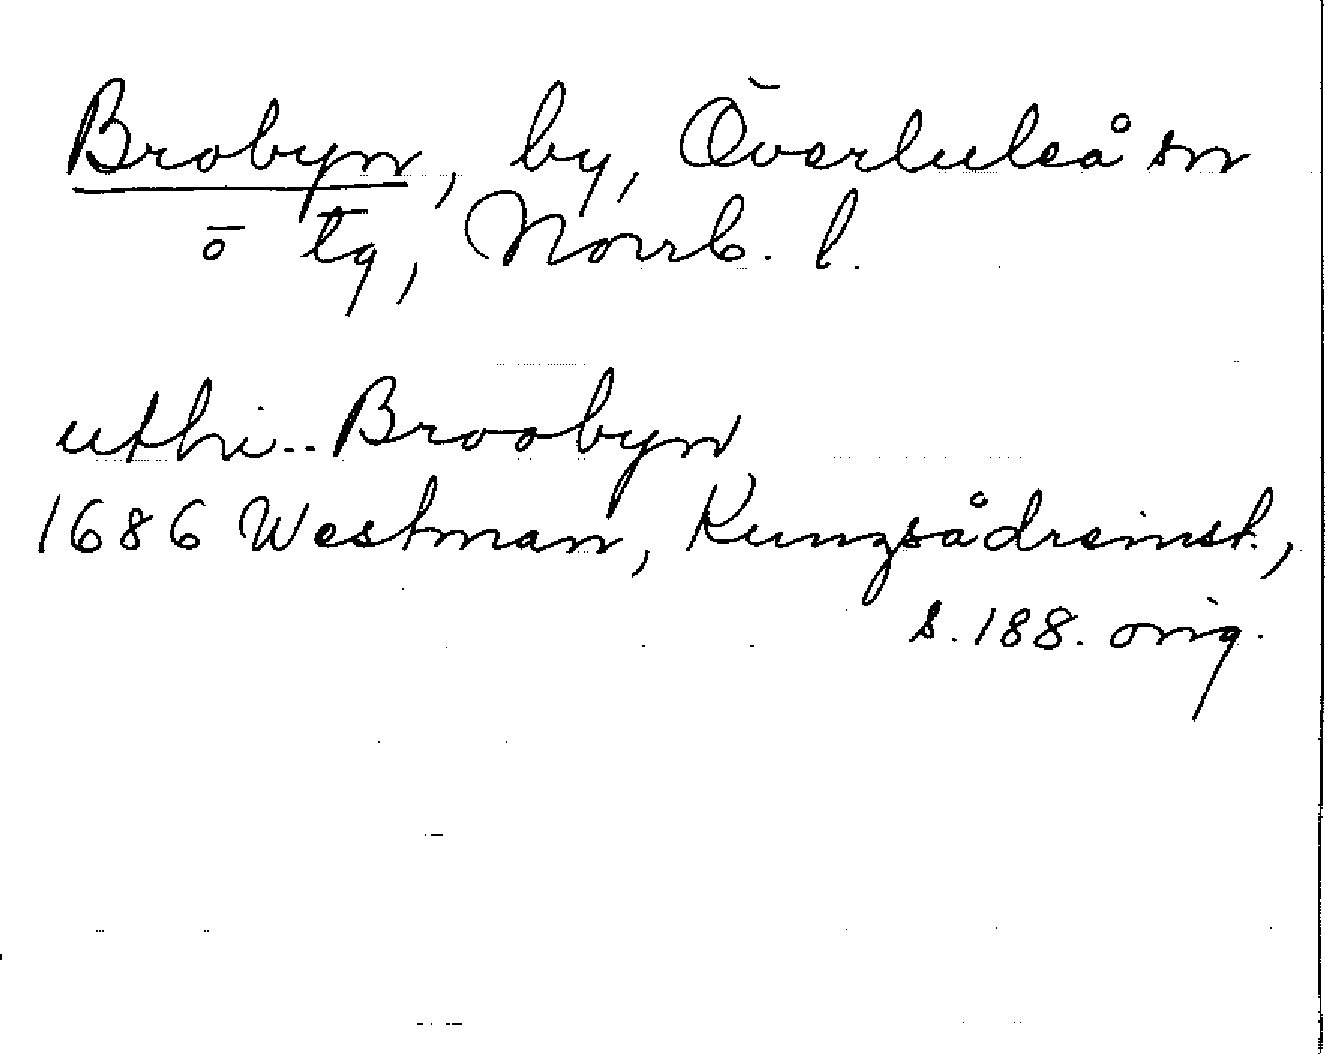 Brobyn, by, Överluleå sn
ö tg, Norrb. l.
uthi.. Broobyn
1686 Westman, Kungsådreinst.,
s. 188. orig.